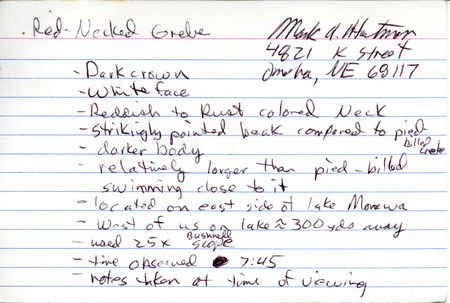 Red-Necked Grebe
Mark A. Hartman
4821 K Street
Omaha, NE 68117
- Dark crown
- White face
- Reddish to Rust colored Neck
- strikingly pointed beak compared to pied-billed Grebe
- darker body
- relatively larger than pied-billed
swimming close to it
- located on east side of lake Monewa
- West of us on lake ≈ 300 yds away
- used 25x Bushnell scope
- time observed 7:45
- notes taken at time of viewing